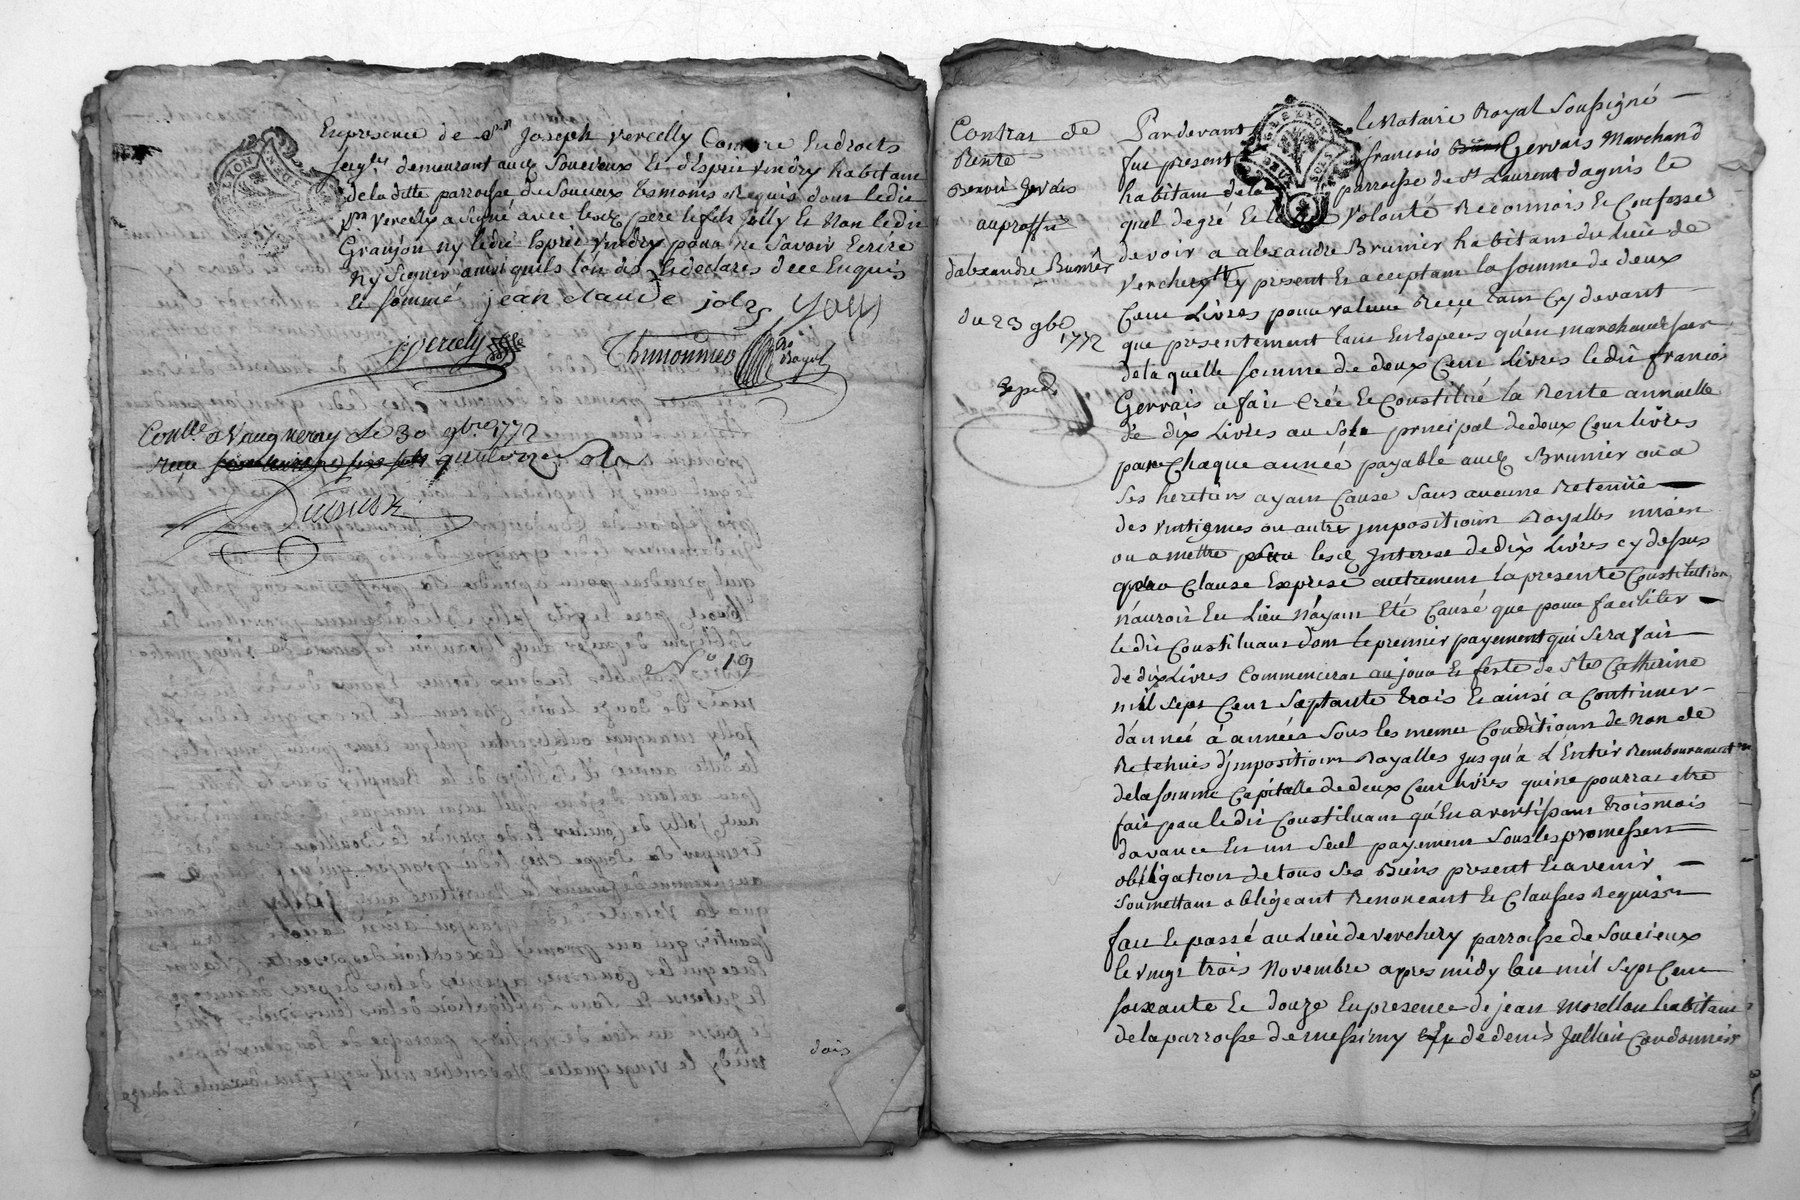 En presence de Sr Joseph Vercelly Comre Endroits
seigls demeurant aud Soucieux Et d'Esprit Vindry habitant
de la ditte parroisse de Soucieux Temoins Requis dont le dit
Sr Vercelly a signé avec lesd pere et fils Jolly Et Non le dit
Granjon ny ledit Esprit Vindry pour ne savoir Ecrire
Ny signer ainsi quils lon dis Et declarés de ce Enquis
Et sommé jean claude joly Jolly
Vercelly Thimonnier No Royal
Conlle a Vaugneray Le 30 9bre 1772
reçu quatorze sols
No 19
dois
Contrat de
Rente
Gervais
au proffit
d'alexandre Brunier
du 23 9bre
1772
Expedé
Pardevant le Notaire Royal Soussigné
fut present françois Gervais Marchand
habitant de la parroisse de St Laurent dagnis le
quel de gré Et Volonté Reconnois Et Confesse
devoir a alexandre Brunier habitant du Lieu de
Verchery Cy present Et acceptant la somme de deux
Cent Livres pour valeur Reçue tant Cy devant
que presentement tant En Especes qu'en marchandises
de la quelle somme de deux Cent Livres le dit françois
Gervais a fait Créé Et Constitué la Rente annuelle
de dix Livres au Sort principal de deux Cent livres
pour Chaque année payable aud Brunier ou a
Ses heritiers ayant Cause Sans aucune Retenüe
des Vintiemes ou autres jmpositions Royalles mises
ou a mettre pour lesd Interest de dix Livres cy dessus
Clause Expresse autrement la presente Constitution
n'auroit Eu Lieu N'ayant Eté Causé que pour faciliter
le dit Constituant dont le premier payement qui sera fait
de dix Livres Commencerat au jour Et feste de Ste Catherine
mil sept Cent Septante trois Et ainsi a Continuer
d'année á années Sous les meme Conditions de Non de
Retenüe d'jmpositions Royalles jusqu'a L'Entier Remboursement
de la somme Capitalle de deux Cent livres qui ne pourrat etre
fait par le dit Constituant qu'En avertissant trois mois
davance En un Seul payement Sous les promesses
obligation de tous Ses Biens present Et avenir
Soumettant obligeant Renonceant Et Clauses Requises
fait Et passé au Lieu de Verchery parroisse de Soucieux
le vingt trois Novembre apres midy lan mil Sept Cent
soixante Et douze En presence de jean Morellon habitant
de la parroisse de messimy Et de denis Jullien Cordonnier